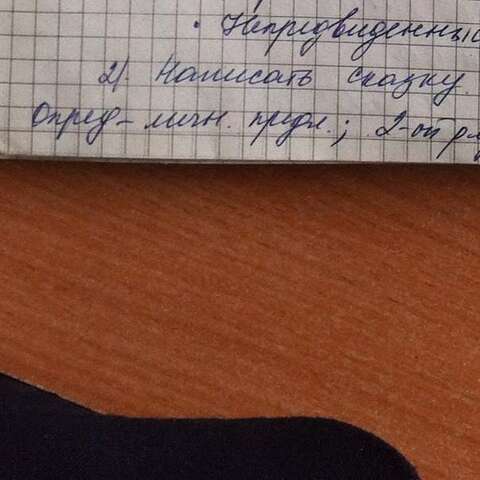 · Непредвиденные
2). Написать сказку.
Опред-личн. предл.; 2-ой